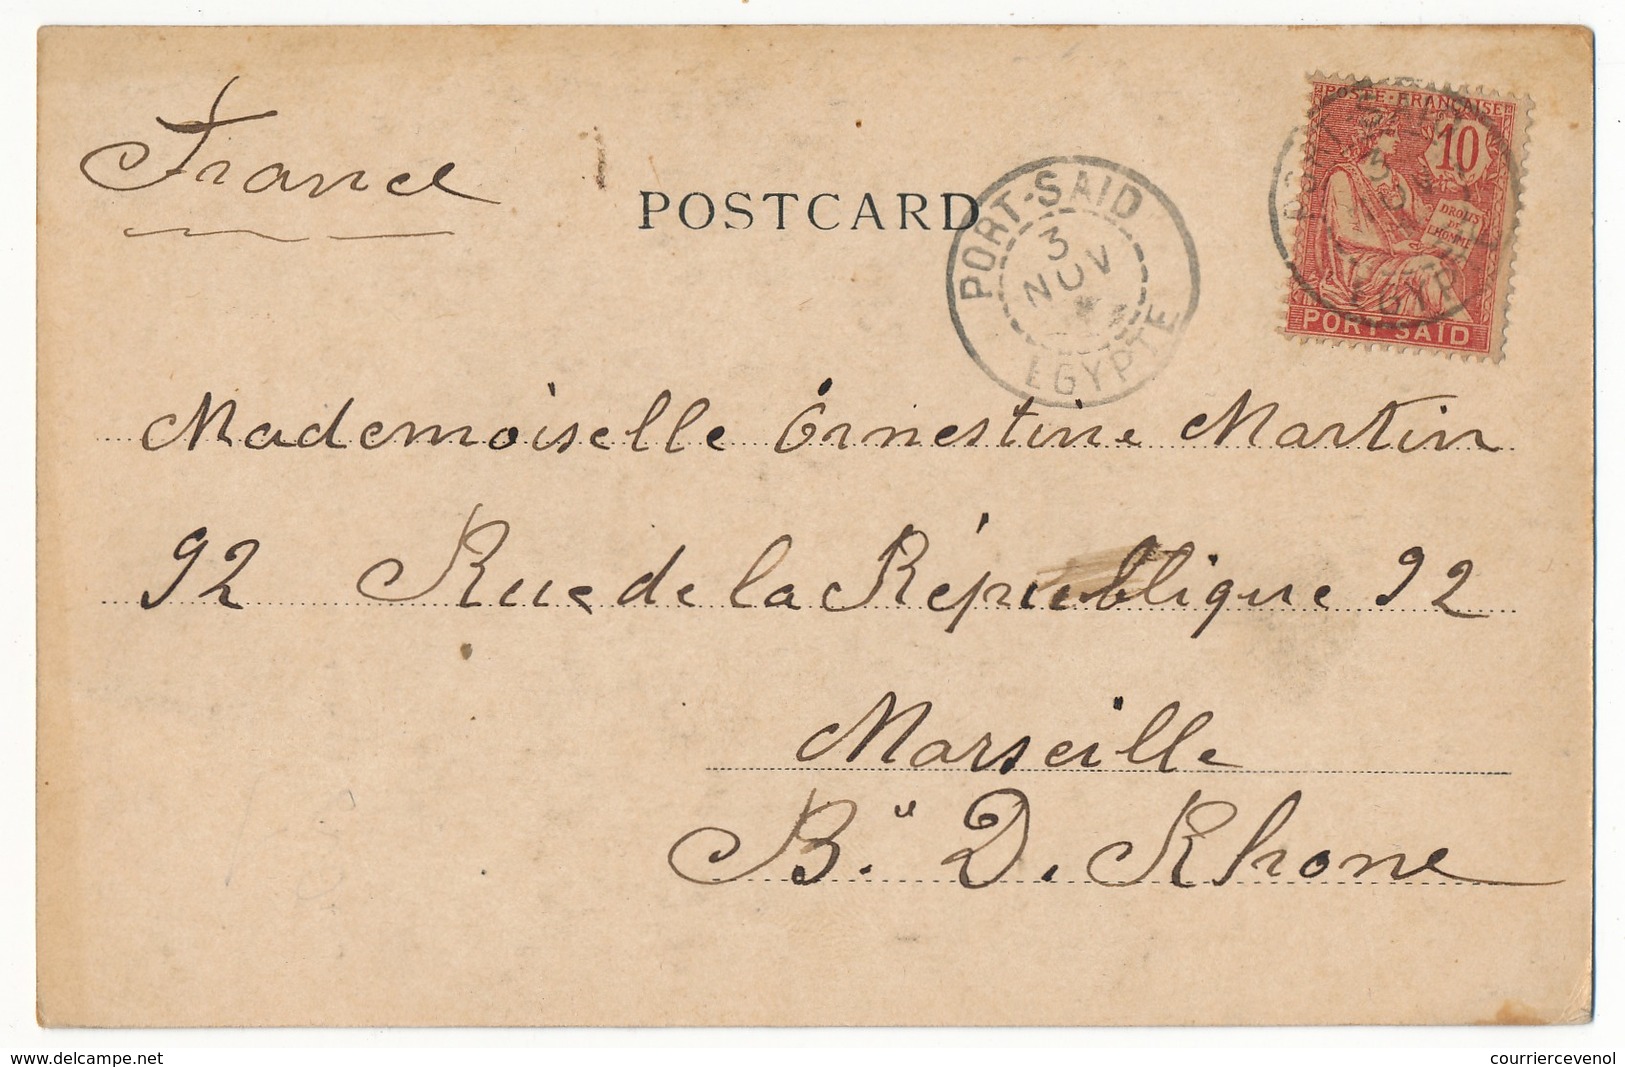 France
POSTCARD
PORT-SAID
3
NOV
EGYPTE
POSTE FRANÇAISE
10
DROITS
DE
L'HOMME
PORT-SAID
Mademoiselle Ernestine Martin
92 Rue de la République 92
Marseille
B." D. Rhone
www.delcampe.net
courriercevenol